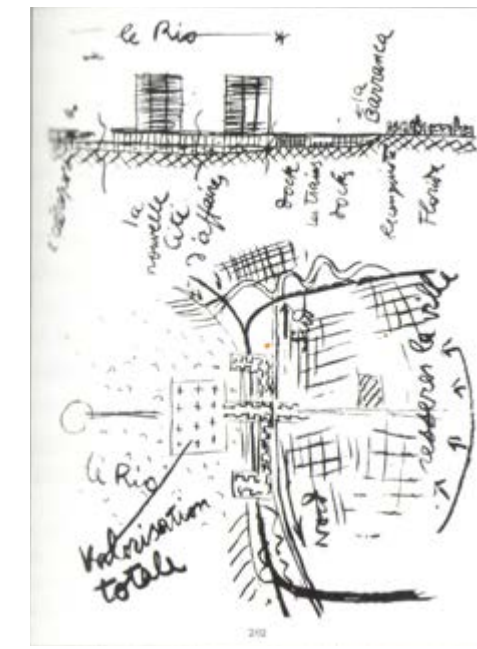 le Rio
la
nouvelle
cité
d'affaires
Dock
les trains
docks
la
Barranca
Reconquista
Florida
Est
resserrer la ville
le Rio
Nord
Valorisation
totale
202